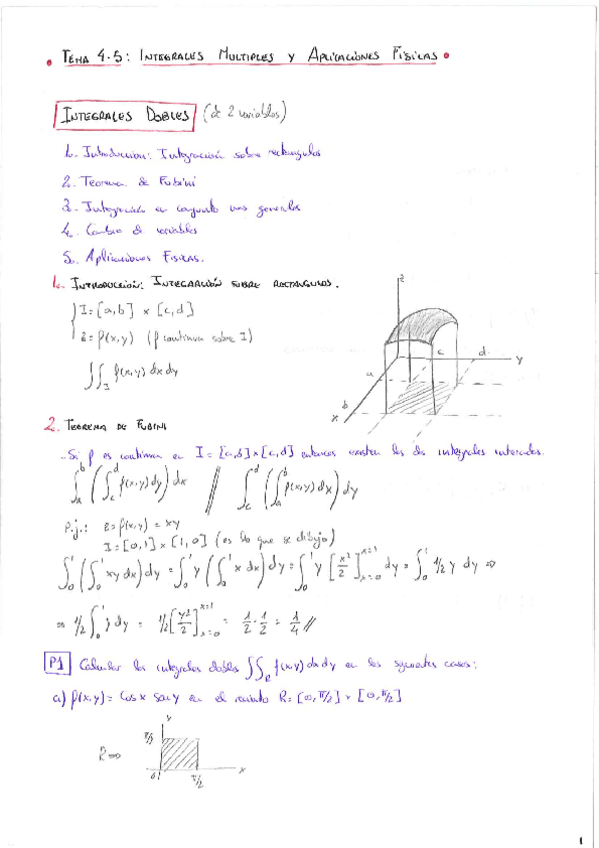 TEMA 4.5: INTEGRALES MULTIPLES Y APLICACIONES FISICAS
INTEGRALES DOBLES (de 2 variables)
1. Introduccion: Integración sobre rectangulos
2. Teorema de Fubini
3. Integración en conjunto mas generales
4. Cambio de variables
5. Aplicaciones Fisicas.
1. INTRODUCCION: INTEGRACIÓN SOBRE RECTANGULOS.
I = [a,b] x [c,d]
z = f(x,y) (f continua sobre I)
∬_I f(x,y) dx dy
z
y
x
a
b
c
d
2. TEOREMA DE FUBINI
Si f es continua en I = [a,b] x [c,d] entonces existen las dos integrales iteradas.
∫_a^b (∫_c^d f(x,y) dy) dx // ∫_c^d (∫_a^b f(x,y) dx) dy
P.j.: z = f(x,y) = xy
I = [0,1] x [1,0] (es lo que se dibujo)
∫_0^1 (∫_0^1 xy dx) dy = ∫_0^1 y (∫_0^1 x dx) dy = ∫_0^1 y [x²/2]_{x=0}^{x=1} dy = ∫_0^1 1/2 y dy ⇒
⇒ 1/2 ∫_0^1 y dy = 1/2 [y²/2]_{x=0}^{x=1} = 1/2 · 1/2 = 1/4 //
P1 Calcular las integrales dobles ∬_R f(x,y) dx dy en los siguientes casos:
a) f(x,y) = cos x sen y en el recinto R = [0, π/2] x [0, π/2]
y
π/2
R ⇒
0
π/2
x
1